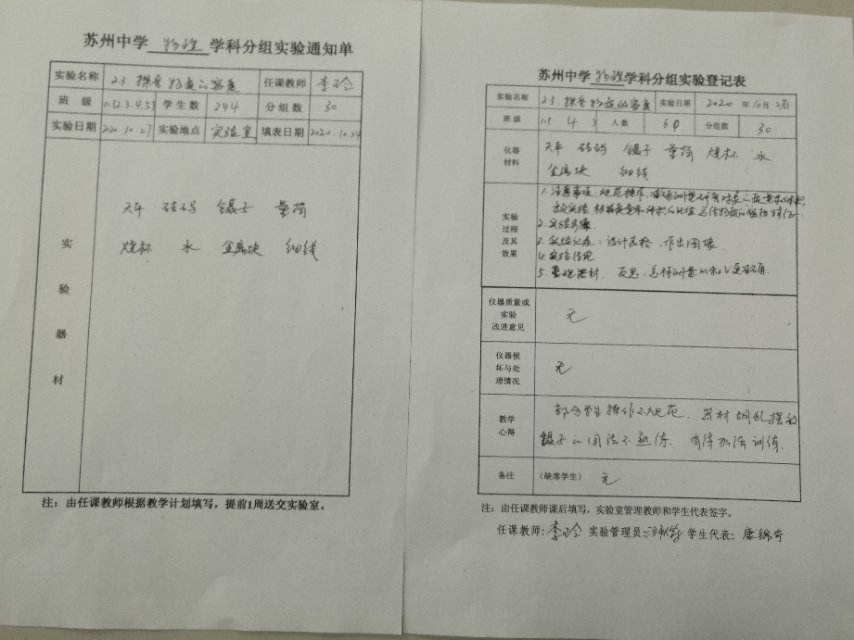 苏州中学 物理 学科分组实验通知单
实验名称 2.3. 探究物质的密度 任课教师 李
班 级 (2.3.4.5) 学生数 244 分组数 30
实验日期 2020.10.27 实验地点 实验室 填表日期 2020.10.24
实验器材
天平 砝码 镊子 量筒
烧杯 水 金属块 细线
注：由任课教师根据教学计划填写，提前1周送交实验室。
苏州中学 物理 学科分组实验登记表
实验名称 2.3. 探究物质的密度 实验日期 2020 年10月
班级 人数 60 分组数 30
仪器材料
天平 砝码 镊子 量筒 烧杯 水
金属块 细线
实验过程及其效果
1. 注意事项、规范操作
2. 实验步骤
3. 实验记录：设计表格，作出图象
4. 实验结论
5. 整理器材 反思：
仪器质量或实验改进意见 无
仪器损坏与处理情况 无
教学心得
部分学生操作不规范、器材胡乱摆放
镊子的用法不熟练、有待加强训练.
备注 （缺席学生） 无
注：由任课教师课后填写，实验室管理教师和学生代表签字。
任课教师：李 实验管理员： 学生代表：康锦奇